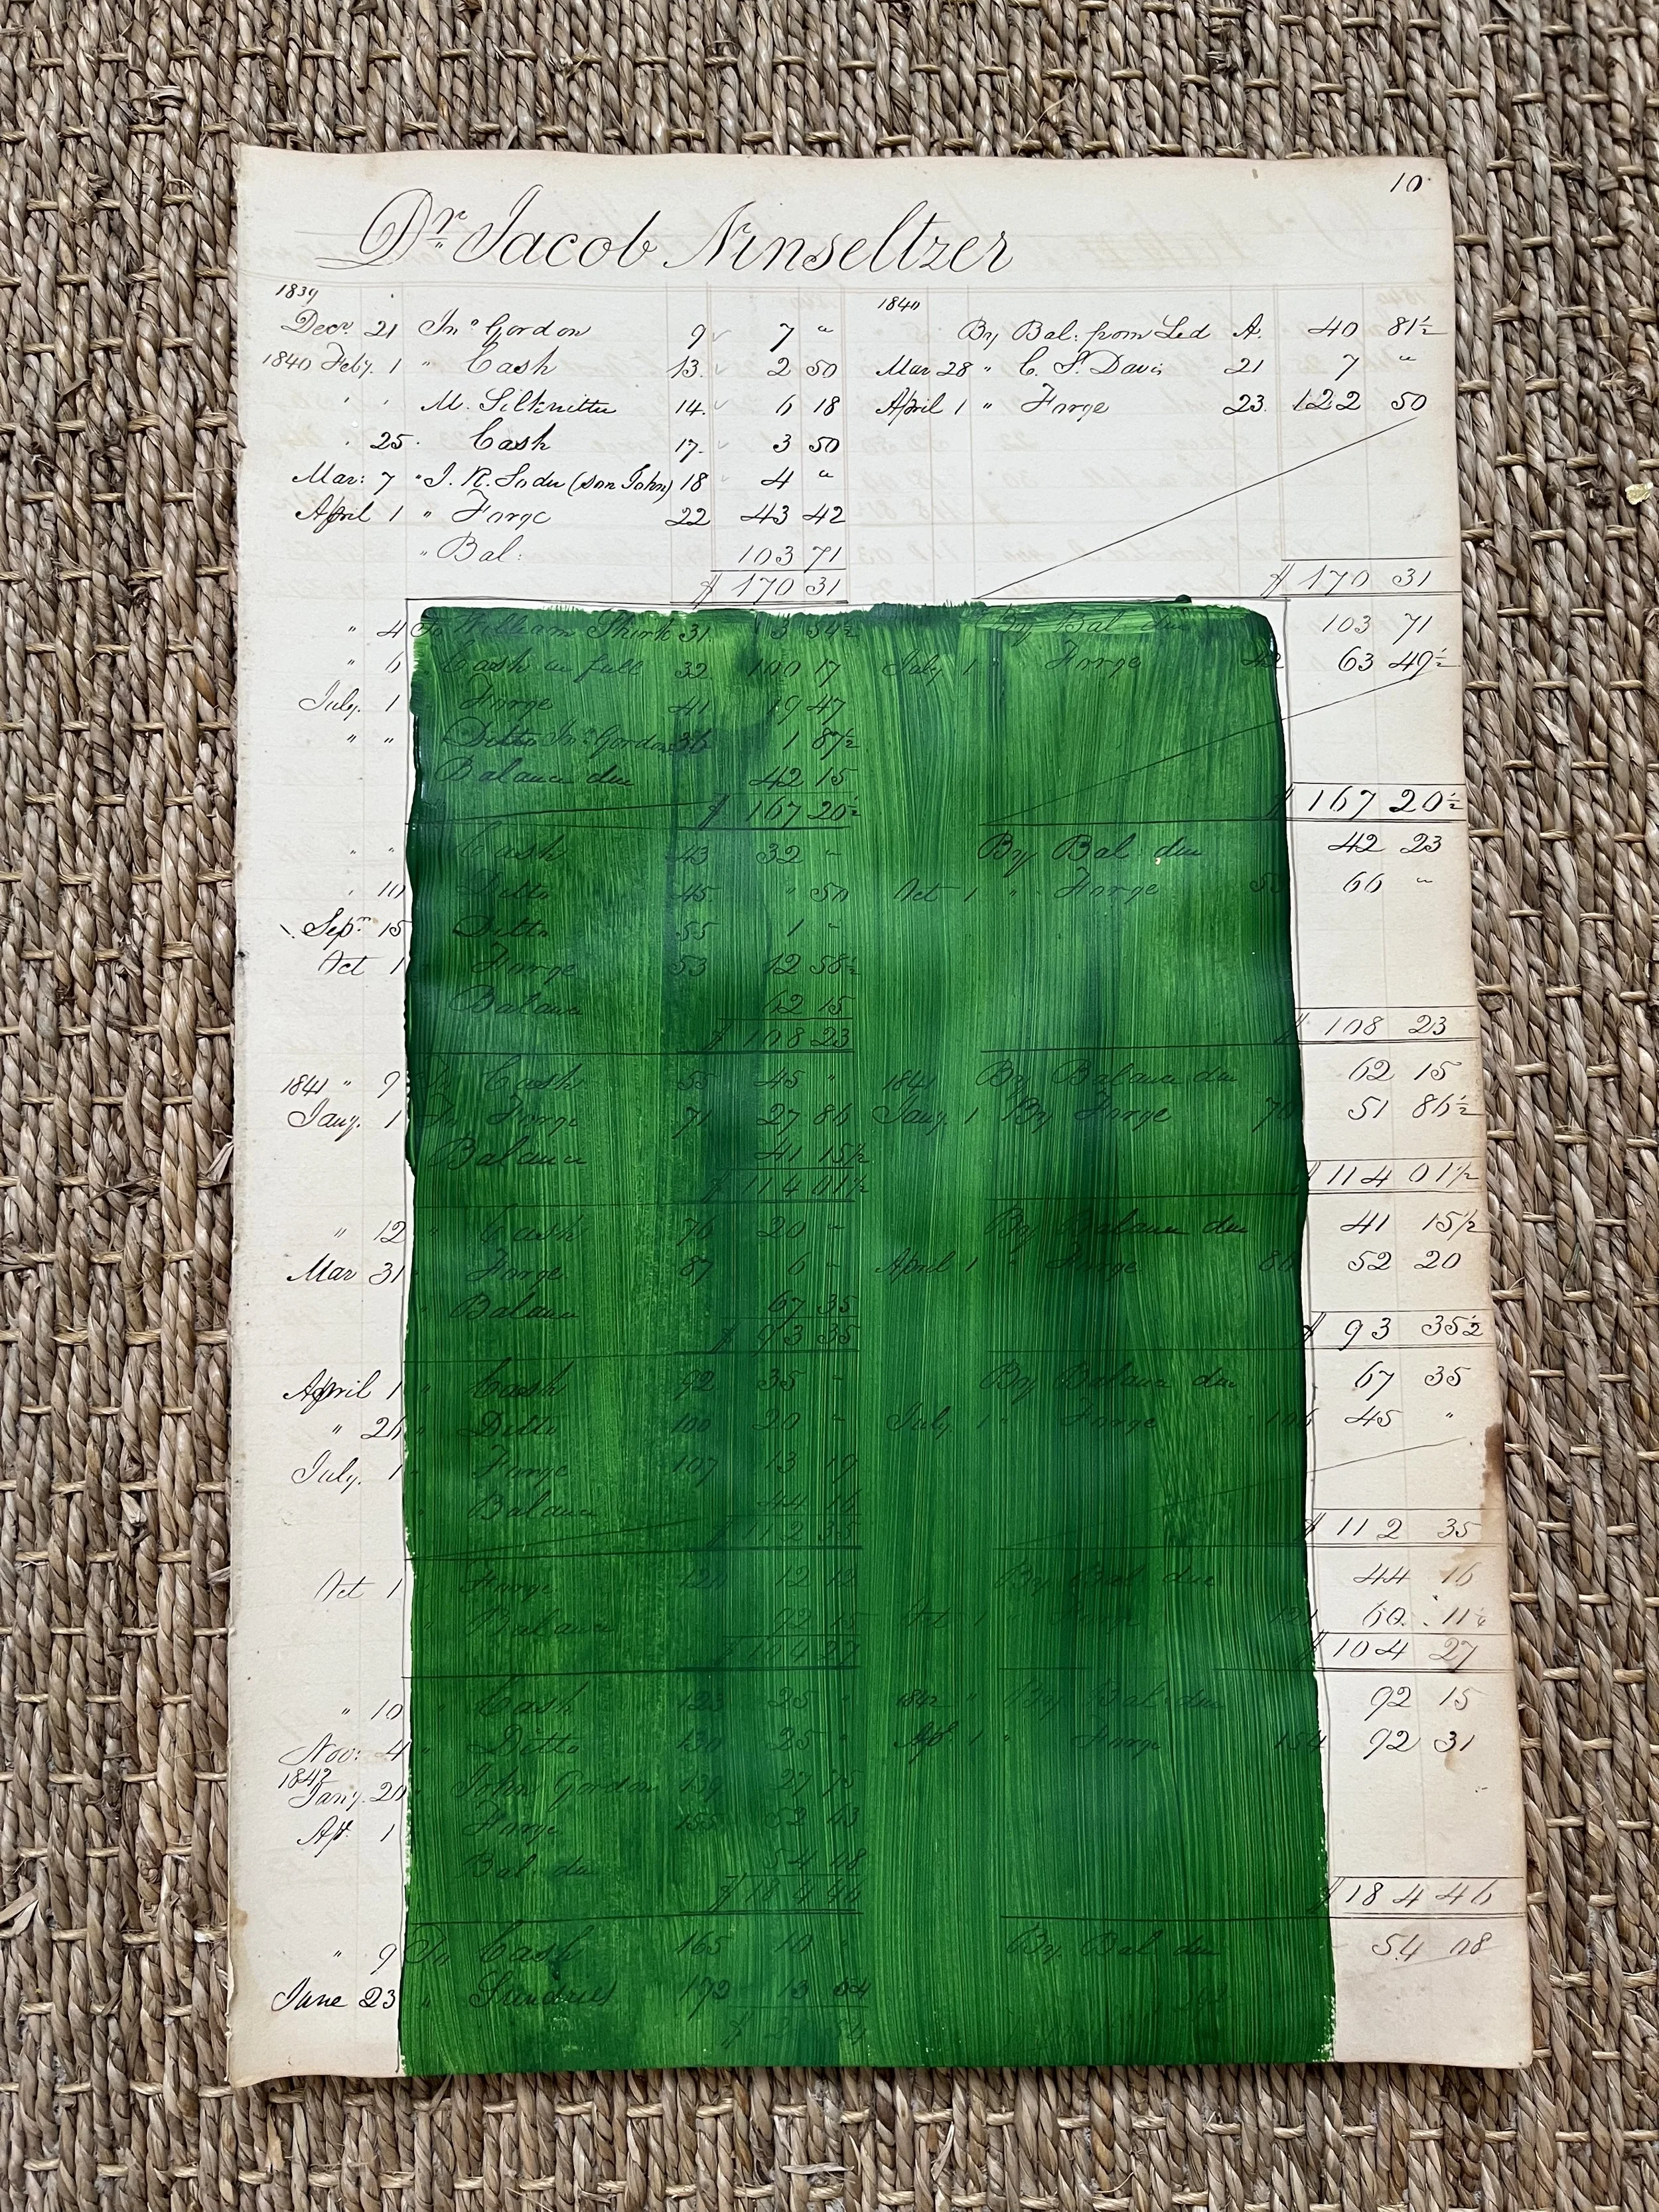 10
Dr. Jacob Ninseltzer
1839 1840
Decr. 21 Jno Gordon 9 7 " By Bal: from Led A. 40 81½
1840 Feby. 1 " Cash 13. 2 50 Mar 28 " C. S. Davis 21 7 "
" " M. Silknitter 14. 6 18 April 1 " Forge 23. 122 50
" 25 Cash 17. 3 50
Mar: 7 " J. R. (son John) 18 4 "
April 1 " Forge 22 43 42
" Bal: 103 71
$ 170 31 $ 170 31
" 4 To William Shirk 31 3 54½ By Bal due 103 71
" 6 Cash in full 32 100 17 July 1 Forge 42 63 49½
July. 1 Forge 41 19 47
" " Ditto Jno Gordon 36 1 87½
Balance due 42 15
$ 167 20½ $ 167 20½
" " Cash 43 32 " By Bal due 42 23
" 10 Ditto 45. " 50 Oct 1 " Forge 66 "
Sepr 15 Ditto 55 1 "
Oct 1 Forge 53 12 58½
Balance 62 15
$ 108 23 $ 108 23
1841 " 9 To Cash 55 45 " 1841 By Balance due 62 15
Jany. 1 To Forge 71 27 86 Jany. 1 By Forge 70 51 86½
Balance 41 15½
$ 114 01½ $ 114 01½
" 12 " Cash 76 20 " By Balance due 41 15½
Mar 31 Forge 87 6 " April 1 " Forge 86 52 20
" Balance 67 35
$ 93 35 $ 93 35½
April 1 " Cash 92 35 " By Balance due 67 35
" 26 " Ditto 100 20 " July 1 " Forge 106 45 "
July. 1 " Forge 107 13 19
" Balance 44 16
$ 112 35 $ 112 35
Oct 1 " Forge 12 12 By Bal due 44 16
" Balance 92 15 Oct 1 " Forge 121 60. 11½
$ 104 27 $ 104 27
" 10 " Cash 123 25 " 1842 By Bal due 92 15
Nov: 4 " Ditto 130 25 " Ap 1 " Forge 154 92 31
1842
Jany. 20 " John Gordon 139 27 75
Apr. 1 Forge 155 52 63
Bal due 54 08
$ 184 46 $ 184 46
" 9 To Cash 165 10 " By Bal due 54 08
June 23 " Sundries 172 13 54
$ 54